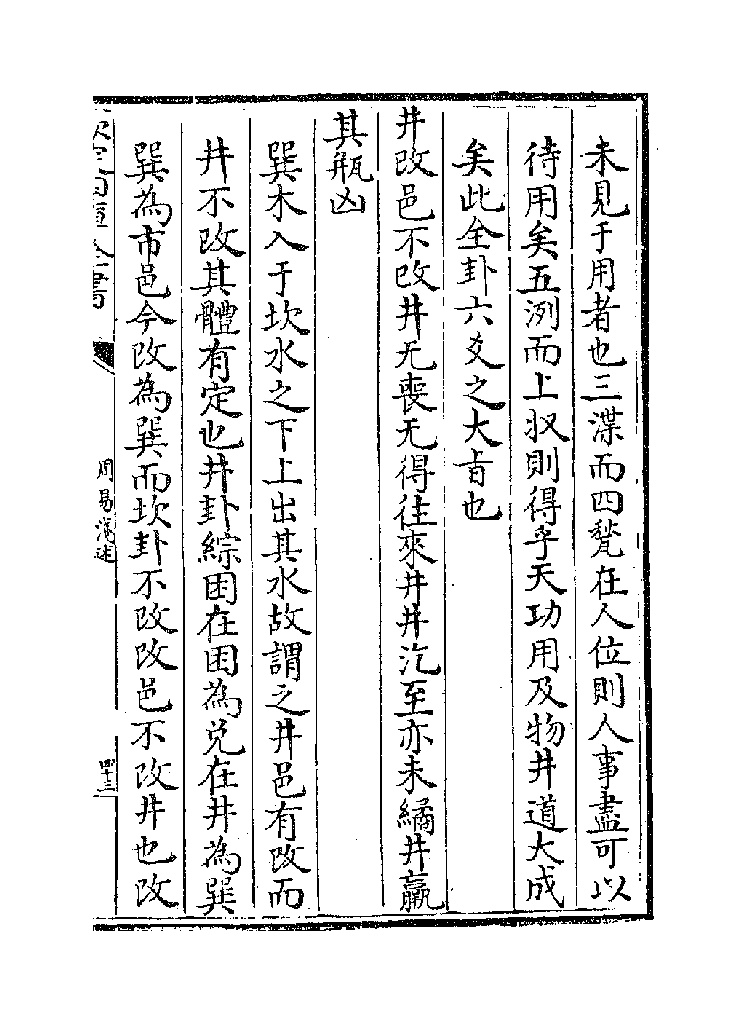 未見于用者也三渫而四甃在人位則人事盡可以
待用矣五洌而上收則得乎天功用及物井道大成
矣此全卦六爻之大旨也
井改邑不改井无喪无得往來井井汔至亦未繘井羸
其瓶凶
巽木入于坎水之下上出其水故謂之井邑有改而
井不改其體有定也井卦綜困在困為兌在井為巽
巽為市邑今改為巽而坎卦不改改邑不改井也改
欽定四庫全書
周易淺述
四十三